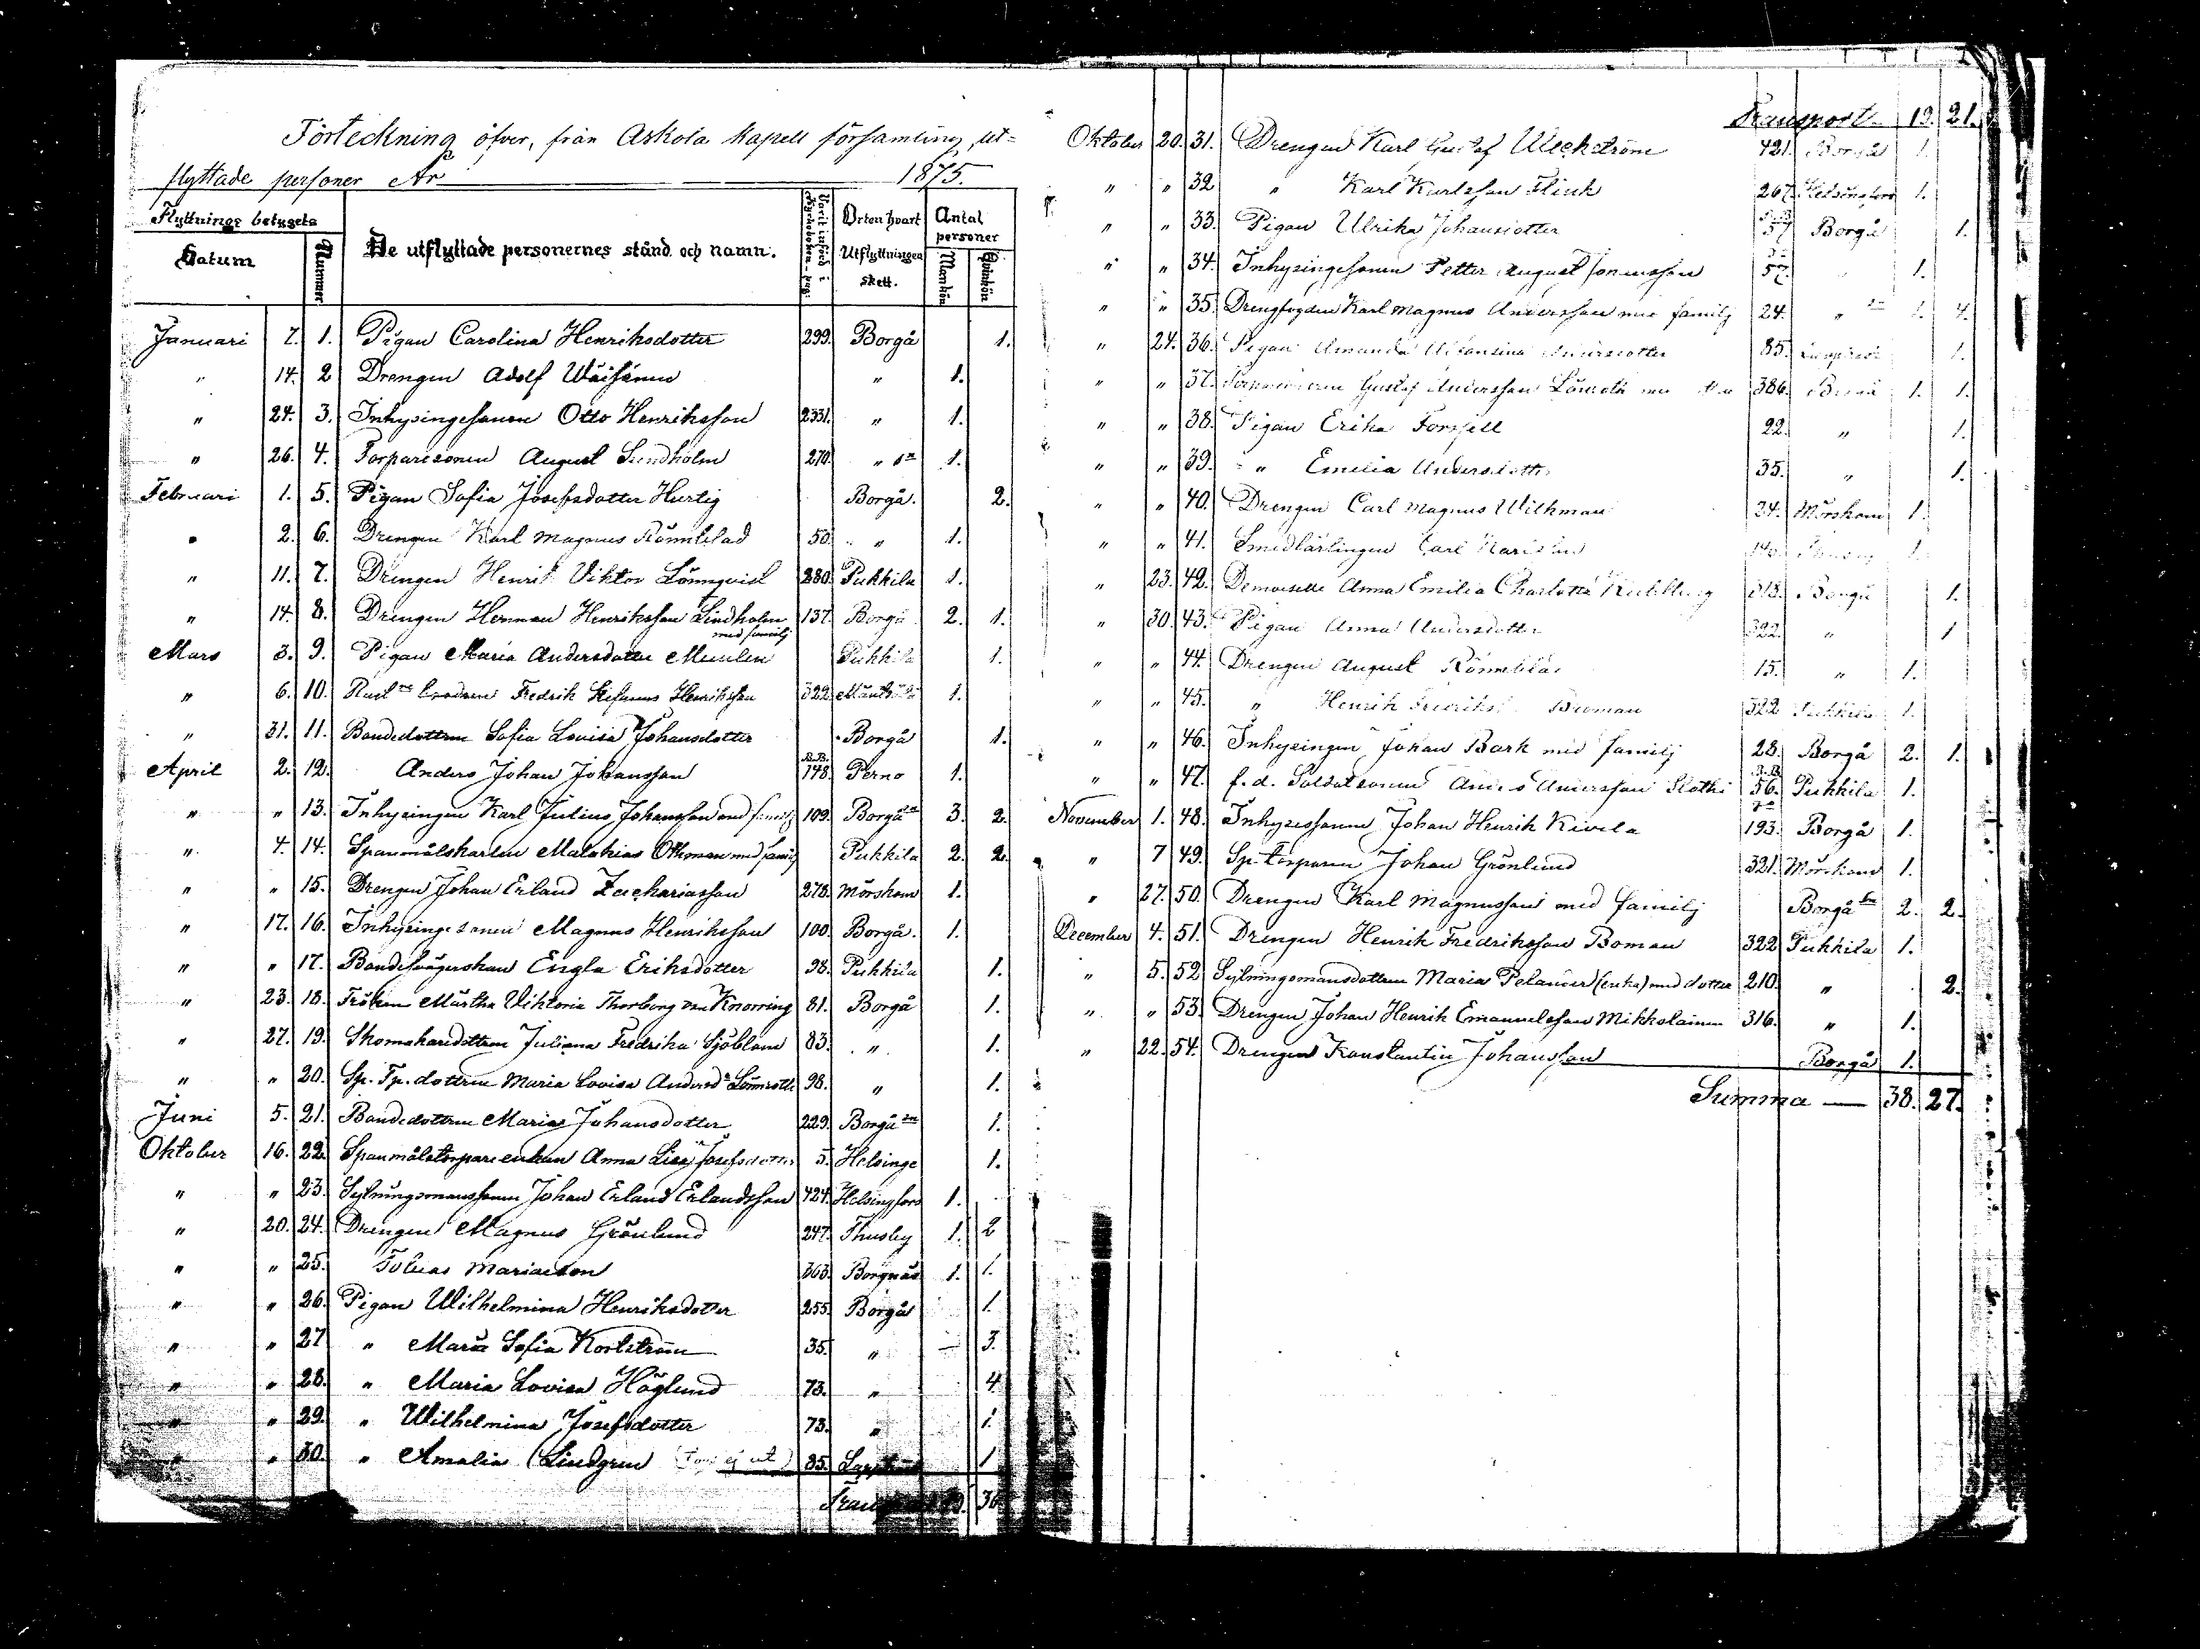 Förteckning öfver, från Askola kapell församling, ut=
flyttade personer År 1875.
Flyttnings betygets
Datum
Nummer
De utflyttade personernes stånd och namn.
Orten hvart Utflyttningen skett.
Antal personer
Mankön
Qvinkön
Januari 7. 1. Pigan Carolina Henriksdotter 299. Borgå 1.
" 14. 2 Drengen Adolf " 1.
" 24. 3. Inhysingesonen Otto Henriksson 2331. " 1.
" 26. 4. Torparesonen August Sundholm 270. " 1.
Februari 1. 5. Pigan Sofia Josefsdotter Hurtig Borgå. 2.
" 2. 6. Drengen Karl Magnus Rönnblad 50. " 1.
" 11. 7. Drengen Henrik Viktor Lönnqvist 280. Pukkila 1.
" 14. 8. Drengen Herman Henriksson Lindholm med familj 137. Borgå 2. 1.
Mars 3. 9. Pigan Maria Andersdotter Pukkila 1.
" 6. 10. Fredrik Henriksson 322. 1.
" 31. 11. Bondedottren Sofia Lovisa Johansdotter Borgå 1.
April 2. 12. Anders Johan Johansson 148. Perno 1.
" " 13. Inhysingen Karl Julius Johansson med familj 109. Borgå 3. 2.
" 4. 14. Spanmålskarlen Malakias Othman med familj Pukkila 2. 2.
" " 15. Drengen Johan Erland Zachariasson 278. Mörskom 1.
" 17. 16. Inhysingesonen Magnus Henriksson 100. Borgå. 1.
" " 17. Bondesvägerskan Engla Eriksdotter 98. Pukkila 1.
" 23. 18. Fröken Märtha Viktoria Thorborg von Knorring 81. Borgå 1.
" 27. 19. Skomakaredottren Juliana Fredrika Sjöblom 83. " 1.
" " 20. Sp. Tp. dottren Maria Lovisa Andersdr Lönnroth 98. " 1.
Juni 5. 21. Bondedottren Maria Johansdotter 229. Borgå 1.
Oktober 16. 22. Spanmålstorpareenkan Anna Lisa Josefsdotter 5. Helsinge 1.
" " 23. Sytningsmanssonen Johan Erland Erlandsson 424. Helsingfors 1.
" 20. 24. Drengen Magnus Grönlund 247. Thusby 1. 2
" " 25. Tobias Mariaeson 363. Borgnäs 1. 1.
" " 26. Pigan Wilhelmina Henriksdotter 255. Borgå 1.
" " 27 " Maria Sofia Kortström 35. " 3.
" " 28. " Maria Lovisa Höglund 73. " 4.
" " 29. " Wilhelmina Josefsdotter 73. " 1.
" " 30. " Amalia Lindgren ej ut) 35. 1
Transport 19. 21.
Oktober 20. 31. Drengen Karl Gustaf Weckström 421. Borgå 1.
" " 32 " Karl Karlsson Flink 267. Helsingfors 1.
" " 33. Pigan Ulrika Johansdotter 57 Borgå 1.
" " 34. Inhysingesonen Petter August 57. " 1.
" " 35. Drengfogden Karl Magnus Andersson med familj 24. " 1. 4.
" 24. 36. Pigan Amanda Andersdotter 85. 1.
" " 37. Gustaf Andersson Lönnroth 386. Borgå 1. 1.
" " 38. Pigan Erika Forssell 22. " 1.
" " 39. " Emilia Andersdotter 35. " 1.
" " 40. Drengen Carl Magnus Wilkman 24. Mörskom 1.
" " 41. Smedlärlingen Carl 1.
" 23. 42. Demoiselle Anna Emilia Charlotta 313. Borgå 1.
" 30. 43. Pigan Anna Andersdotter 322. " 1
" " 44. Drengen August Rönnblad 15. " 1.
" " 45. " Henrik Fredriksson Boman 322 Pukkila 1.
" " 46. Inhysingen Johan Bark med familj 28. Borgå 2. 1.
" " 47. f.d. Soldatsonen Anders Andersson 56. Pukkila 1.
November 1. 48. Johan Henrik Kivela 193. Borgå 1.
" 7 49. Sp. torparen Johan Grönlund 321. Mörskom 1.
" 27. 50. Drengen Karl Magnusson med familj Borgå 2. 2.
December 4. 51. Drengen Henrik Fredriksson Boman 322 Pukkila 1.
" 5. 52 Sytningsmansdottren Maria Pelander (enka) med dotter 210. " 2.
" " 53. Drengen Johan Henrik Emanuelsson Mikkolainen 316. " 1.
" 22. 54. Drengen Konstantin Johansson Borgå 1.
Summa — 38. 27.